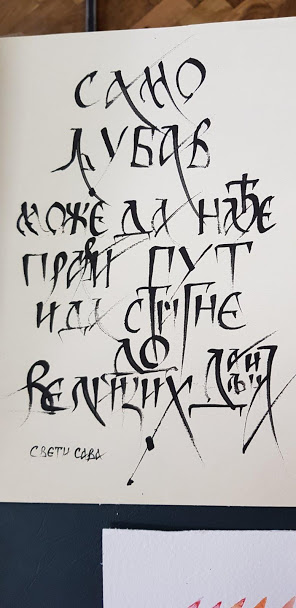 САМО
ЉУБАВ
МОЖЕ ДА НАЂЕ
ПРАВИ ПУТ
И ДА СТИГНЕ
ДО
ВЕЛИКИХ ДАЉИНА
СВЕТИ САВА